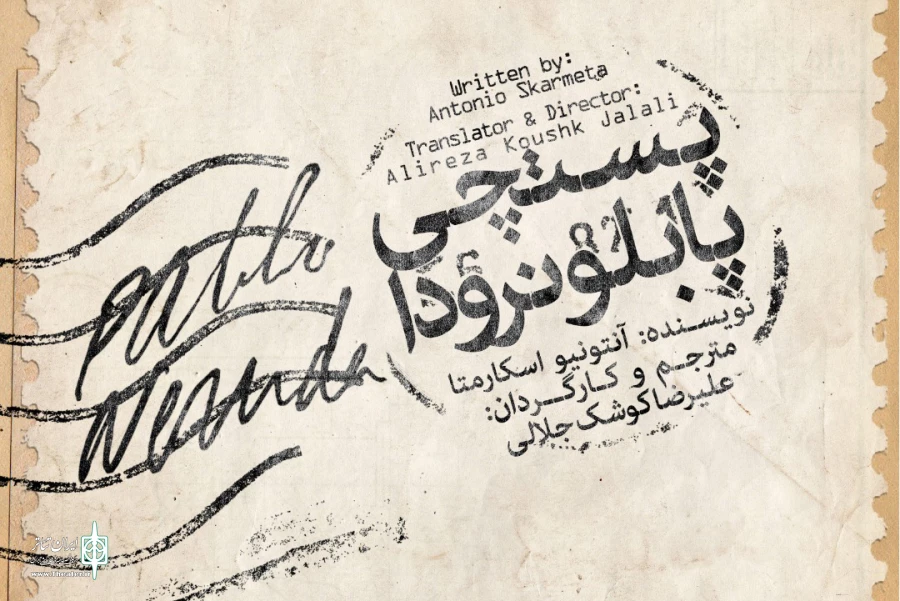 Written by:
Antonio Skarmeta
Translator & Director:
Alireza Koushk Jalali
پستچی
پابلو نرودا
نویسنده: آنتونیو اسکارمتا
مترجم و کارگردان:
علیرضا کوشک جلالی
Pablo
Neruda
ایران تئاتر
www.Theater.ir